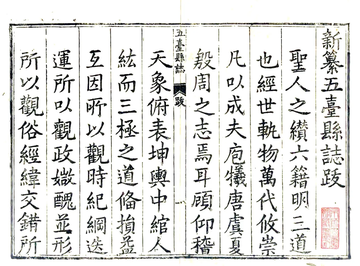 新纂五臺縣誌跋
聖人之纘六籍明三道
也經世軌物萬代攸崇
凡以成夫庖犧唐虞夏
殷周之志焉耳顧仰稽
五臺縣誌
跋
天象俯袤坤輿中綰人
紘而三極之道脩損益
互因所以觀時紀綱迭
運所以觀政媺醜並形
所以觀俗經緯交錯所